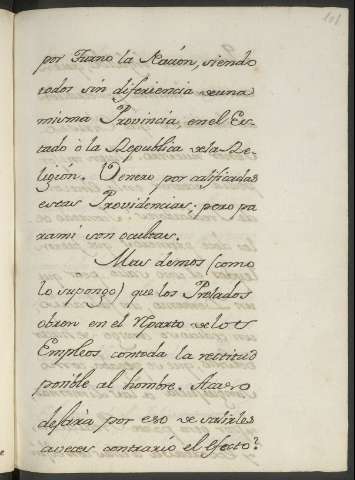 101
por Turno la Nación, siendo
todos sin diferiencia de una
misma Provincia, en el Es-
tado ò la Republica de la Re-
ligión. Venero por calificadas
estas Providencias; pero pa
rami son ocultas.
Mas demos (como
lo supongo) que los Prelados
obren en el reparto de los
Empleos con toda la rectitud
posible al hombre. Acaso
dexàrà por eso de salirles
aveces contrario el efecto?